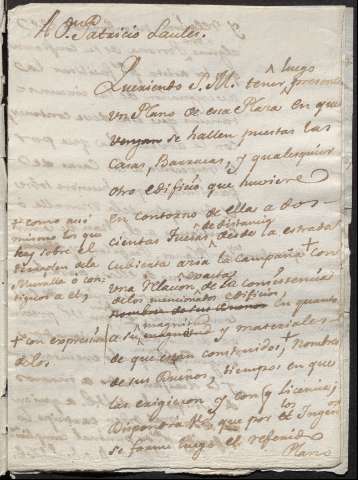 A Dn. Patricio Laules.
luego
Queriendo S.M. tener, presente
un Plano de esa Plaza en que
vengan se hallen puestas las
Casas, Barracas, y qualesquier
otro edificio que huviere
en contorno de ella a dos-
de distancia
cientas Tuesas, desde la estrada
cubierta acia la Campaña + con
+ como asi
mismo los que
hay sobre el
terraplen de la
Muralla ó con-
tiguos a el,
exacta
una Relacion, de la consistencia
de los mencionados edificios,
nombre de sus en quanto
magnitud
a su y materiales
de que estan construidos, + nombres
+ con expresion
de los
de sus Dueños, tiempos en que
las erigieron y con licencia,
Dispondra que por el Ingeno.
se forme luego el referido
Plano